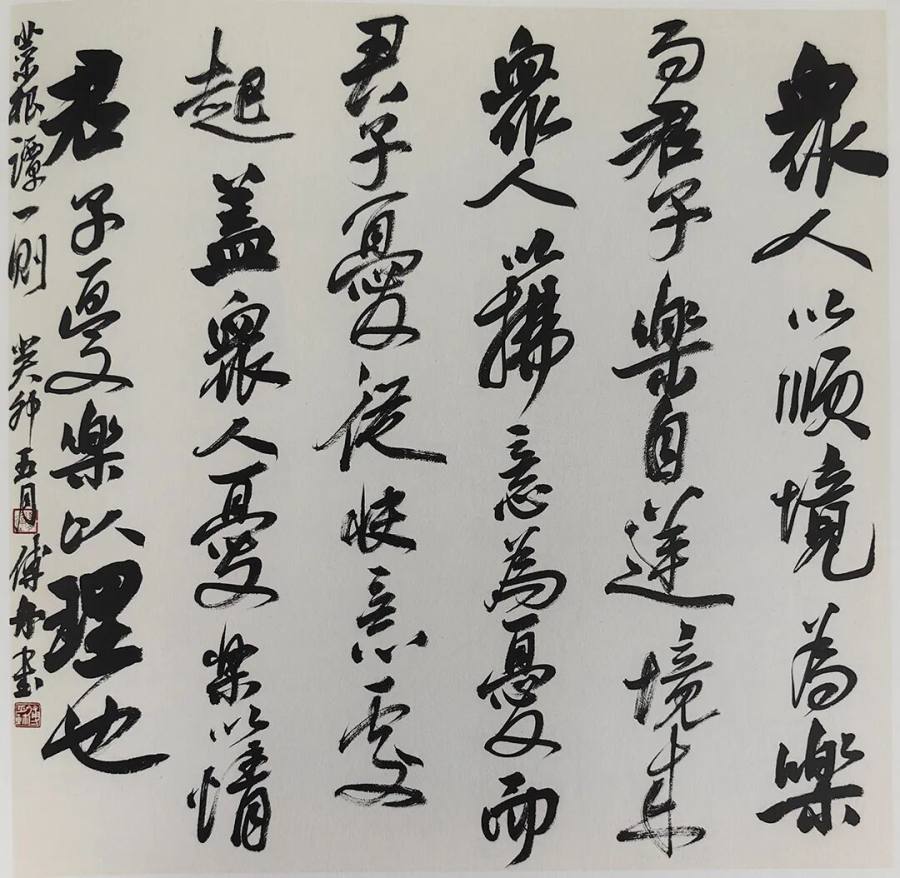 衆人以順境為樂
而君子樂自逆境來
衆人以拂意為憂而
君子憂從快意處
起蓋衆人憂樂以情
君子憂樂以理也
菜根譚一則 癸卯五月 傅 書